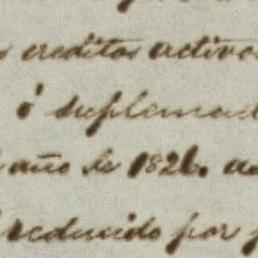 creditos activos
ó suplemad
año de 1826.
reducido por